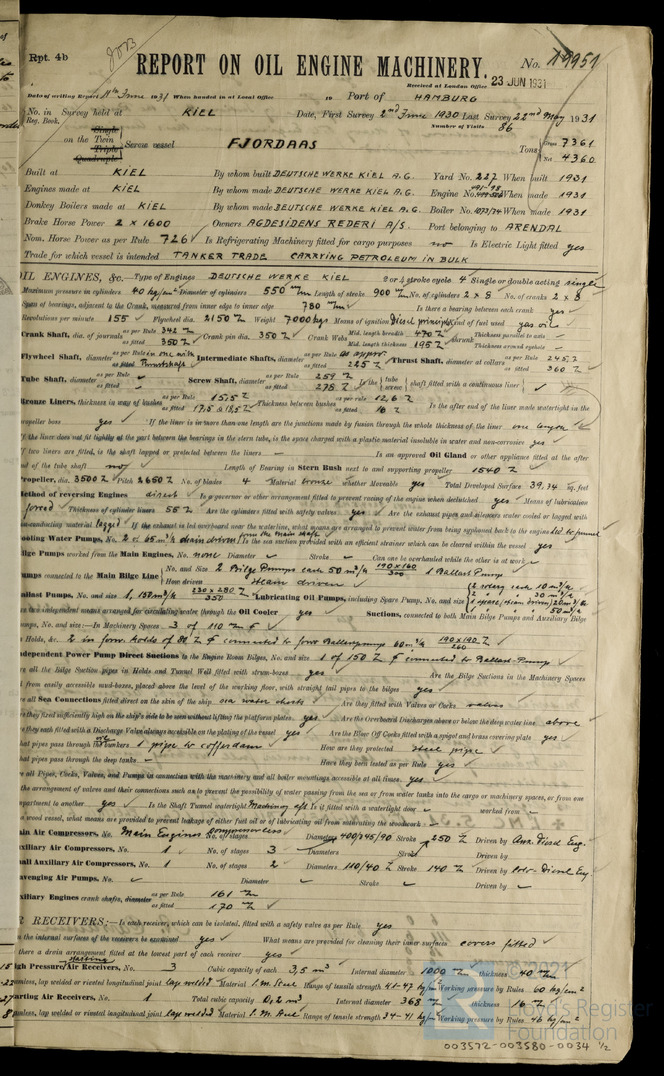 Rpt. 4b
REPORT ON OIL ENGINE MACHINERY. No. 19951
Received at London Office 23 JUN 1931
Date of writing Report 11th June 1931 When handed in at Local Office Port of HAMBURG
No. in Survey held at KIEL Date, First Survey 2nd June 1930 Last Survey 22nd May 1931
Reg. Book. Number of Visits 86
Single
on the Twin Screw vessel FJORDAAS Tons Gross 7361
Triple Net 4360
Quadruple
Built at KIEL By whom built DEUTSCHE WERKE KIEL A.G. Yard No. 227 When built 1931
Engines made at KIEL By whom made DEUTSCHE WERKE KIEL A.G. Engine No. When made 1931
Donkey Boilers made at KIEL By whom made DEUTSCHE WERKE KIEL A.G. Boiler No. 1073/74 When made 1931
Brake Horse Power 2 x 1600 Owners AGDESIDENS REDERI A/S. Port belonging to ARENDAL
Nom. Horse Power as per Rule 726 Is Refrigerating Machinery fitted for cargo purposes no Is Electric Light fitted yes
Trade for which vessel is intended TANKER TRADE CARRYING PETROLEUM IN BULK
OIL ENGINES, &c. Type of Engines DEUTSCHE WERKE KIEL 2 or 4 stroke cycle 4 Single or double acting single
Maximum pressure in cylinders 40 kg/cm² Diameter of cylinders 550 mm Length of stroke 900 mm No. of cylinders 2 x 8 No. of cranks 2 x 8
Span of bearings, adjacent to the Crank, measured from inner edge to inner edge 780 mm Is there a bearing between each crank yes
Revolutions per minute 155 Flywheel dia. 2150 Weight 7000 kgs Means of ignition Diesel principle Kind of fuel used gas oil
Crank Shaft, dia. of journals as per Rule 342 as fitted 350 Crank pin dia. 350 Crank Webs Mid. length breadth 470 Mid. length thickness 195 shrunk Thickness parallel to axis Thickness around eyehole
Flywheel Shaft, diameter as per Rule in one with as fitted Thrustshaft Intermediate Shafts, diameter as per Rule as appr. as fitted 225 Thrust Shaft, diameter at collars as per Rule 245,2 as fitted 360
Tube Shaft, diameter as per Rule as fitted Screw Shaft, diameter as per Rule 259 as fitted 278 Is the tube screw shaft fitted with a continuous liner
Bronze Liners, thickness in way of bushes as per Rule 15,5 as fitted 17,5 & 18,5 Thickness between bushes as per Rule 12,6 as fitted 16 Is the after end of the liner made watertight in the
propeller boss yes If the liner is in more than one length are the junctions made by fusion through the whole thickness of the liner one length
If the liner does not fit tightly at the part between the bearings in the stern tube, is the space charged with a plastic material insoluble in water and non-corrosive yes
If two liners are fitted, is the shaft lapped or protected between the liners Is an approved Oil Gland or other appliance fitted at the after
end of the tube shaft no Length of Bearing in Stern Bush next to and supporting propeller 1540
Propeller, dia. 3500 Pitch 2650 No. of blades 4 Material bronze whether Moveable yes Total Developed Surface 39,34 sq. feet
Method of reversing Engines direct Is a governor or other arrangement fitted to prevent racing of the engine when declutched yes Means of lubrication
forced Thickness of cylinder liners 55 Are the cylinders fitted with safety valves yes Are the exhaust pipes and silencers water cooled or lagged with
non-conducting material lagged If the exhaust is led overboard near the waterline, what means are arranged to prevent water from being syphoned back to the engine led to funnel
Cooling Water Pumps, No. 2 of 65 m³/h chain driven from the main shaft Is the sea suction provided with an efficient strainer which can be cleared within the vessel yes
Bilge Pumps worked from the Main Engines, No. none Diameter Stroke Can one be overhauled while the other is at work
Pumps connected to the Main Bilge Line No. and Size 2 Bilge Pumps each 50 m³/h 190x160/300 1 Ballast Pump
How driven steam driven
Ballast Pumps, No. and size 1, 150 m³/h 230x280/350 Lubricating Oil Pumps, including Spare Pump, No. and size
two independent means arranged for circulating water through the Oil Cooler yes Suctions, connected to both Main Bilge Pumps and Auxiliary Bilge
Pumps, No. and size:—In Machinery Spaces 3 of 110
Holds, &c. 2 in forw. holds of 80 connected to forw Ballastpump 60 m³/h 190x190/260
Independent Power Pump Direct Suctions to the Engine Room Bilges, No. and size 1 of 150 connected to Ballast-Pump
Are all the Bilge Suction pipes in Holds and Tunnel Well fitted with strum-boxes yes Are the Bilge Suctions in the Machinery Spaces
led from easily accessible mud-boxes, placed above the level of the working floor, with straight tail pipes to the bilges yes
Are all Sea Connections fitted direct on the skin of the ship sea water chests Are they fitted with Valves or Cocks valves
Are they fixed sufficiently high on the ship's side to be seen without lifting the platform plates yes Are the Overboard Discharges above or below the deep water line above
Are they each fitted with a Discharge Valve always accessible on the plating of the vessel yes Are the Blow Off Cocks fitted with a spigot and brass covering plate yes
What pipes pass through the bunkers 1 pipe to cofferdam How are they protected steel pipe
What pipes pass through the deep tanks Have they been tested as per Rule yes
Are all Pipes, Cocks, Valves, and Pumps in connection with the machinery and all boiler mountings accessible at all times yes
Is the arrangement of valves and their connections such as to prevent the possibility of water passing from the sea or from water tanks into the cargo or machinery spaces, or from one
compartment to another yes Is the Shaft Tunnel watertight Machinery aft Is it fitted with a watertight door worked from
If a wood vessel, what means are provided to prevent leakage of either fuel oil or lubricating oil from saturating the woodwork
Main Air Compressors, No. Main Engines compressorless No. of stages Diameters 400/345/90 Stroke 250 Driven by Aux. Diesel Eng.
Auxiliary Air Compressors, No. 1 No. of stages 3 Diameters Stroke Driven by
Small Auxiliary Air Compressors, No. 1 No. of stages 2 Diameters 110/40 Stroke 140 Driven by Diesel Eng.
Scavenging Air Pumps, No. Diameter Stroke Driven by
Auxiliary Engines crank shafts, diameter as per Rule 161 as fitted 170
AIR RECEIVERS:—Is each receiver, which can be isolated, fitted with a safety valve as per Rule yes
Can the internal surfaces of the receivers be examined yes What means are provided for cleaning their inner surfaces covers fitted
Is there a drain arrangement fitted at the lowest part of each receiver yes
High Pressure Air Receivers, No. 3 Cubic capacity of each 3,5 m³ Internal diameter 1000 thickness 40
Seamless, lap welded or riveted longitudinal joint lap welded Material S.M. Steel Range of tensile strength 41-47 kg/ Working pressure by Rules 60 kg/cm²
Starting Air Receivers, No. 1 Total cubic capacity 0,2 m³ Internal diameter 368 thickness 16
Seamless, lap welded or riveted longitudinal joint lap welded Material S.M. Steel Range of tensile strength 34-41 kg/ Working pressure by Rules 46 kg/cm²
© 2021
Lloyd's Register
Foundation
003572-003580-0034 1/2